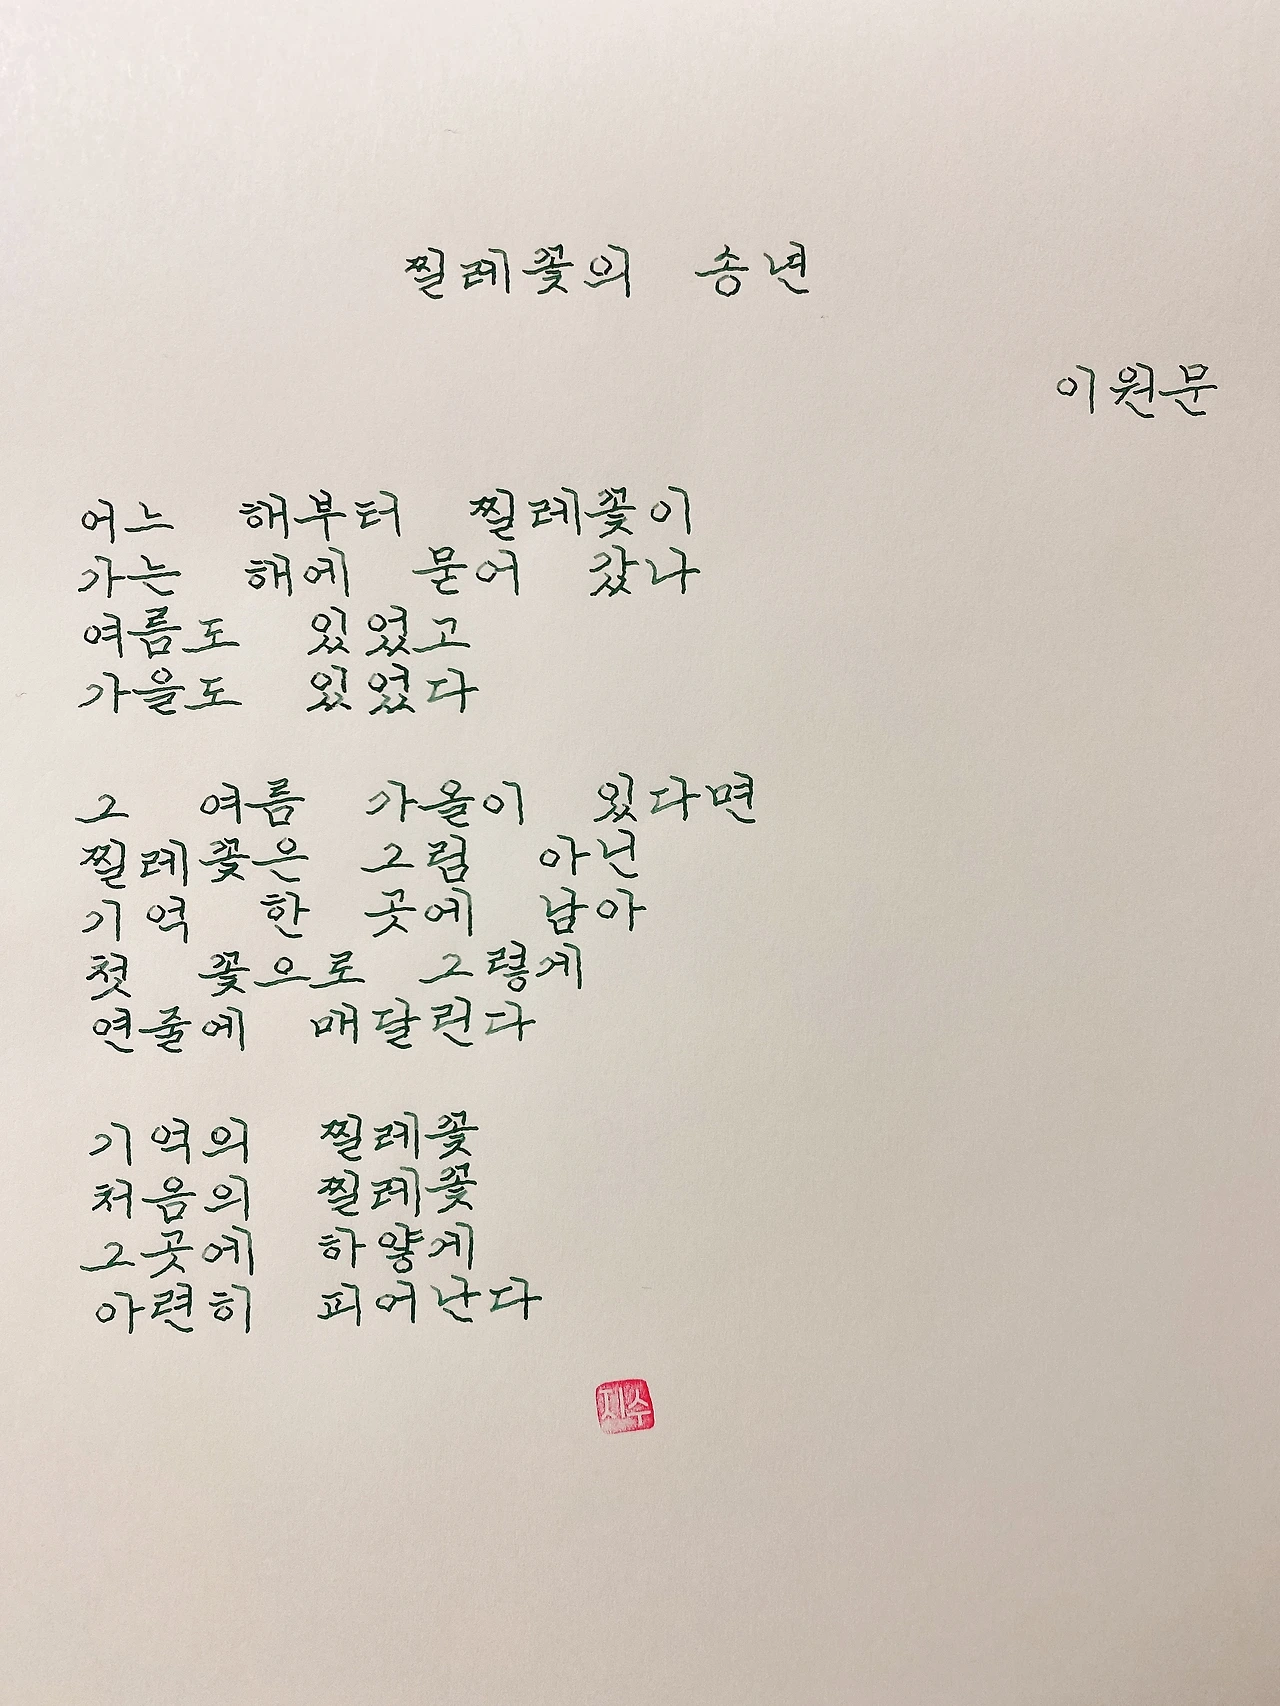 찔레꽃의 송년
이원문
어느 해부터 찔레꽃이
가는 해에 묻어 갔나
여름도 있었고
가을도 있었다
그 여름 가을이 있다면
찔레꽃은 그럼 아닌
기억 한 곳에 남아
첫 꽃으로 그렇게
연줄에 매달린다
기억의 찔레꽃
처음의 찔레꽃
그곳에 하얗게
아련히 피어난다
지수